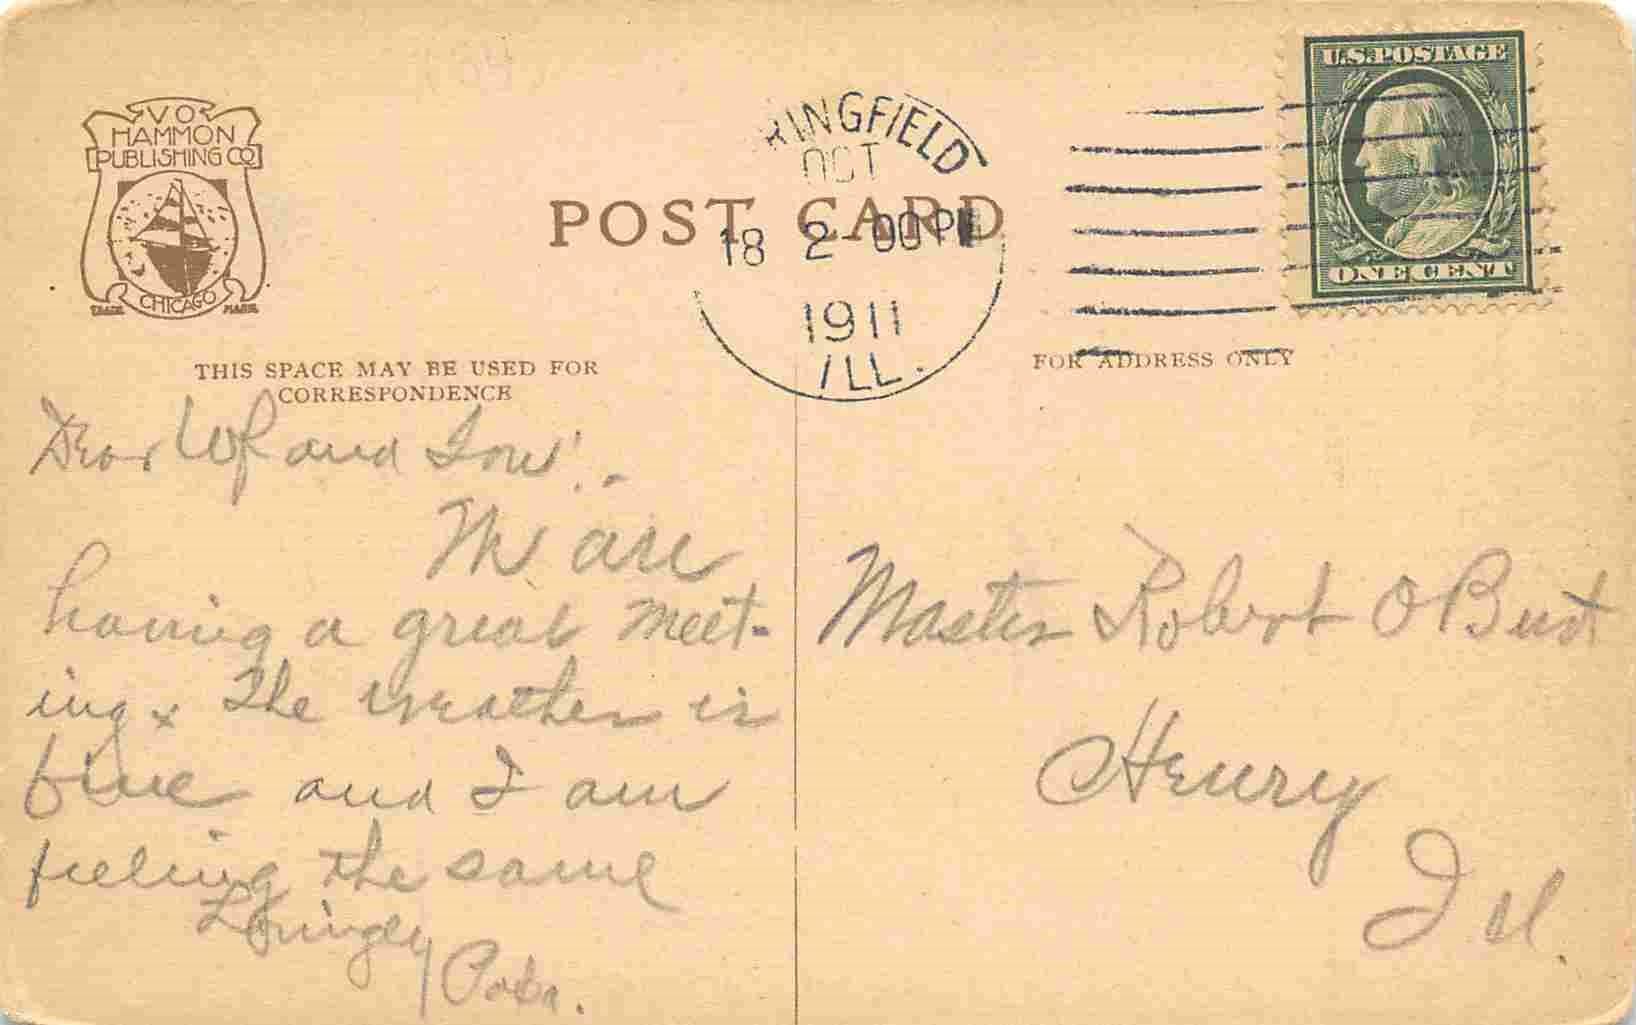 V O
HAMMON
PUBLISHING CO
CHICAGO
TRADE MARK
POST CARD
RINGFIELD
OCT
18 2-00 PM
1911
ILL.
U.S. POSTAGE
ONE CENT
THIS SPACE MAY BE USED FOR
CORRESPONDENCE
FOR ADDRESS ONLY
Dear and
We are
having a great meet-
ing x The weather is
fine and I am
feeling the same
Papa.
Master Robert O Burt
Henry
Ill.